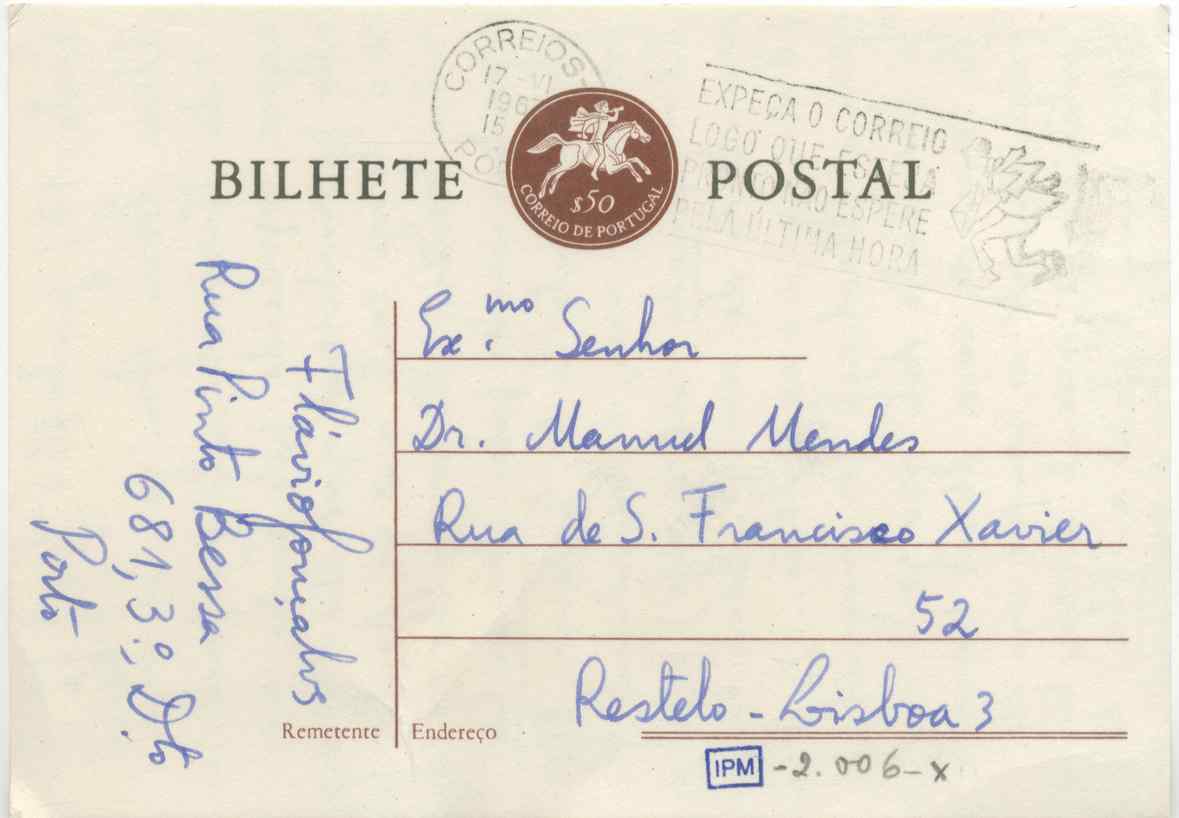 BILHETE POSTAL
CORREIOS
17 - VI
15
$50
CORREIO DE PORTUGAL
EXPEÇA O CORREIO
LOGO QUE ESTEJA
PRONTO NÃO ESPERE
PELA ÚLTIMA HORA
Ex.mo Senhor
Dr. Manuel Mendes
Rua de S. Francisco Xavier
52
Restelo - Lisboa 3
Remetente
Endereço
Flávio Gonçalves
Rua Pinto Bessa
681, 3.º, D.to
Porto
IPM - 2.006 - X